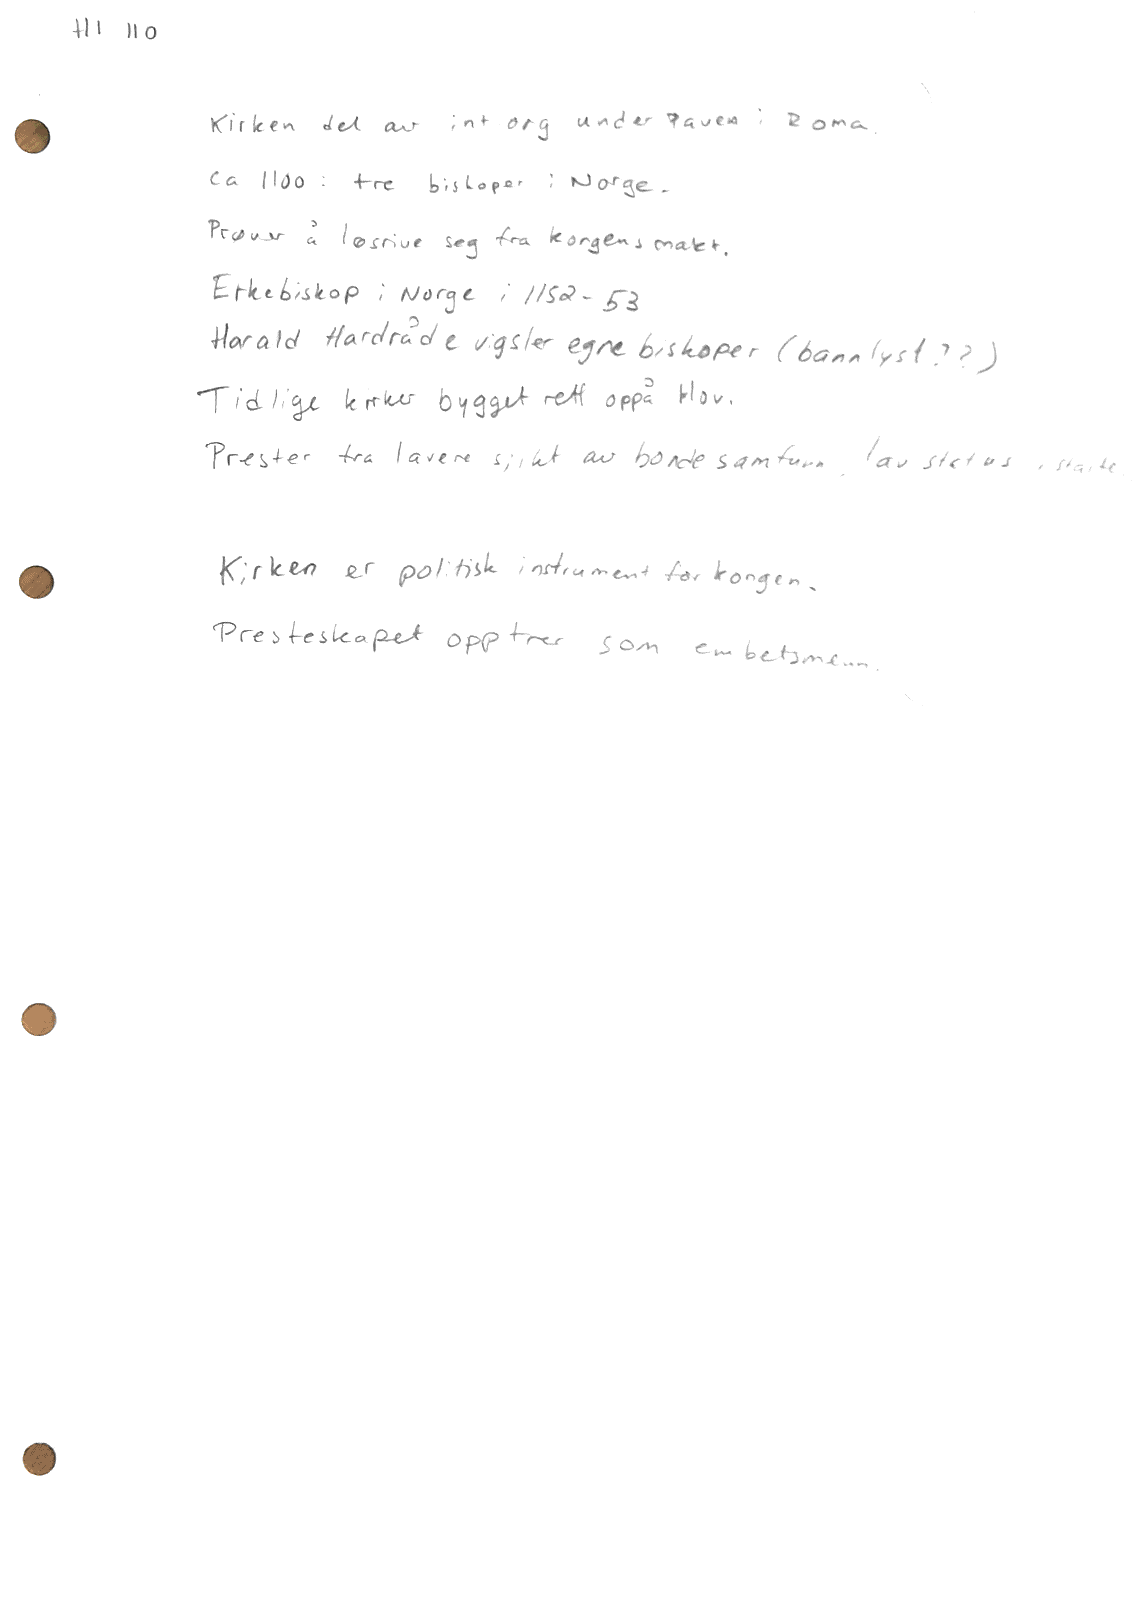 HI 110
Kirken del av int org under Paven i Roma.
Ca 1100: tre biskoper i Norge.
Prøver å løsrive seg fra kongens makt.
Erkebiskop i Norge i 1152-53
Harald Hardråde vigsler egne biskoper (bannlyst??)
Tidlige kirker bygget rett oppå hov.
Prester fra lavere sjikt av bondesamfunn. lav status i starte
Kirken er politisk instrument for kongen.
Presteskapet opptrer som embetsmenn.